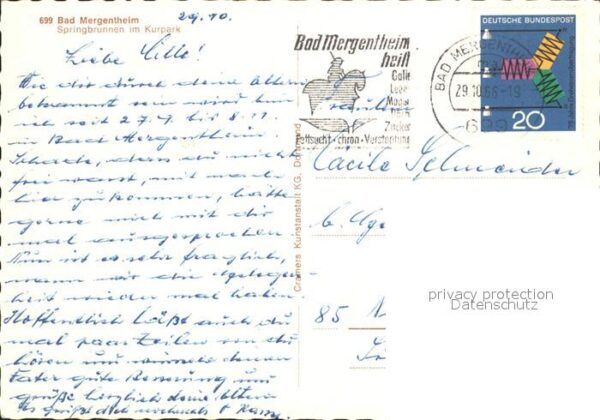 699 Bad Mergentheim
Springbrunnen im Kurpark
29.10.
Liebe Cille!
Wie dir durch deine Eltern
bekannt sein wird bin
ich seit 27.9. bis 8.11.
in Bad Mergentheim.
Schade, daß du nicht
frei warst, mal
hier zu kommen, hätte
gerne mich mit dir
mal ausgesprochen.
Nun ist es sehr fraglich,
wann wir die Gelegen-
heit wieder mal haben.
Hoffentlich läßt auch du
mal paar Zeilen von dir
hören und wünsche deinem
Vater gute Besserung und
grüße herzlich deine Eltern
es grüßt dich nochmals
Cramers Kunstanstalt KG, Dortmund
Bad Mergentheim
heilt
Galle
Leber
Magen
Darm
Zucker
Fettsucht · chron. Verstopfung
BAD MERGENTHEIM
29.10.66-19
699
DEUTSCHE BUNDESPOST
20
Fräulein
Cäcilie Schneider
b.
85 N
privacy protection
Datenschutz